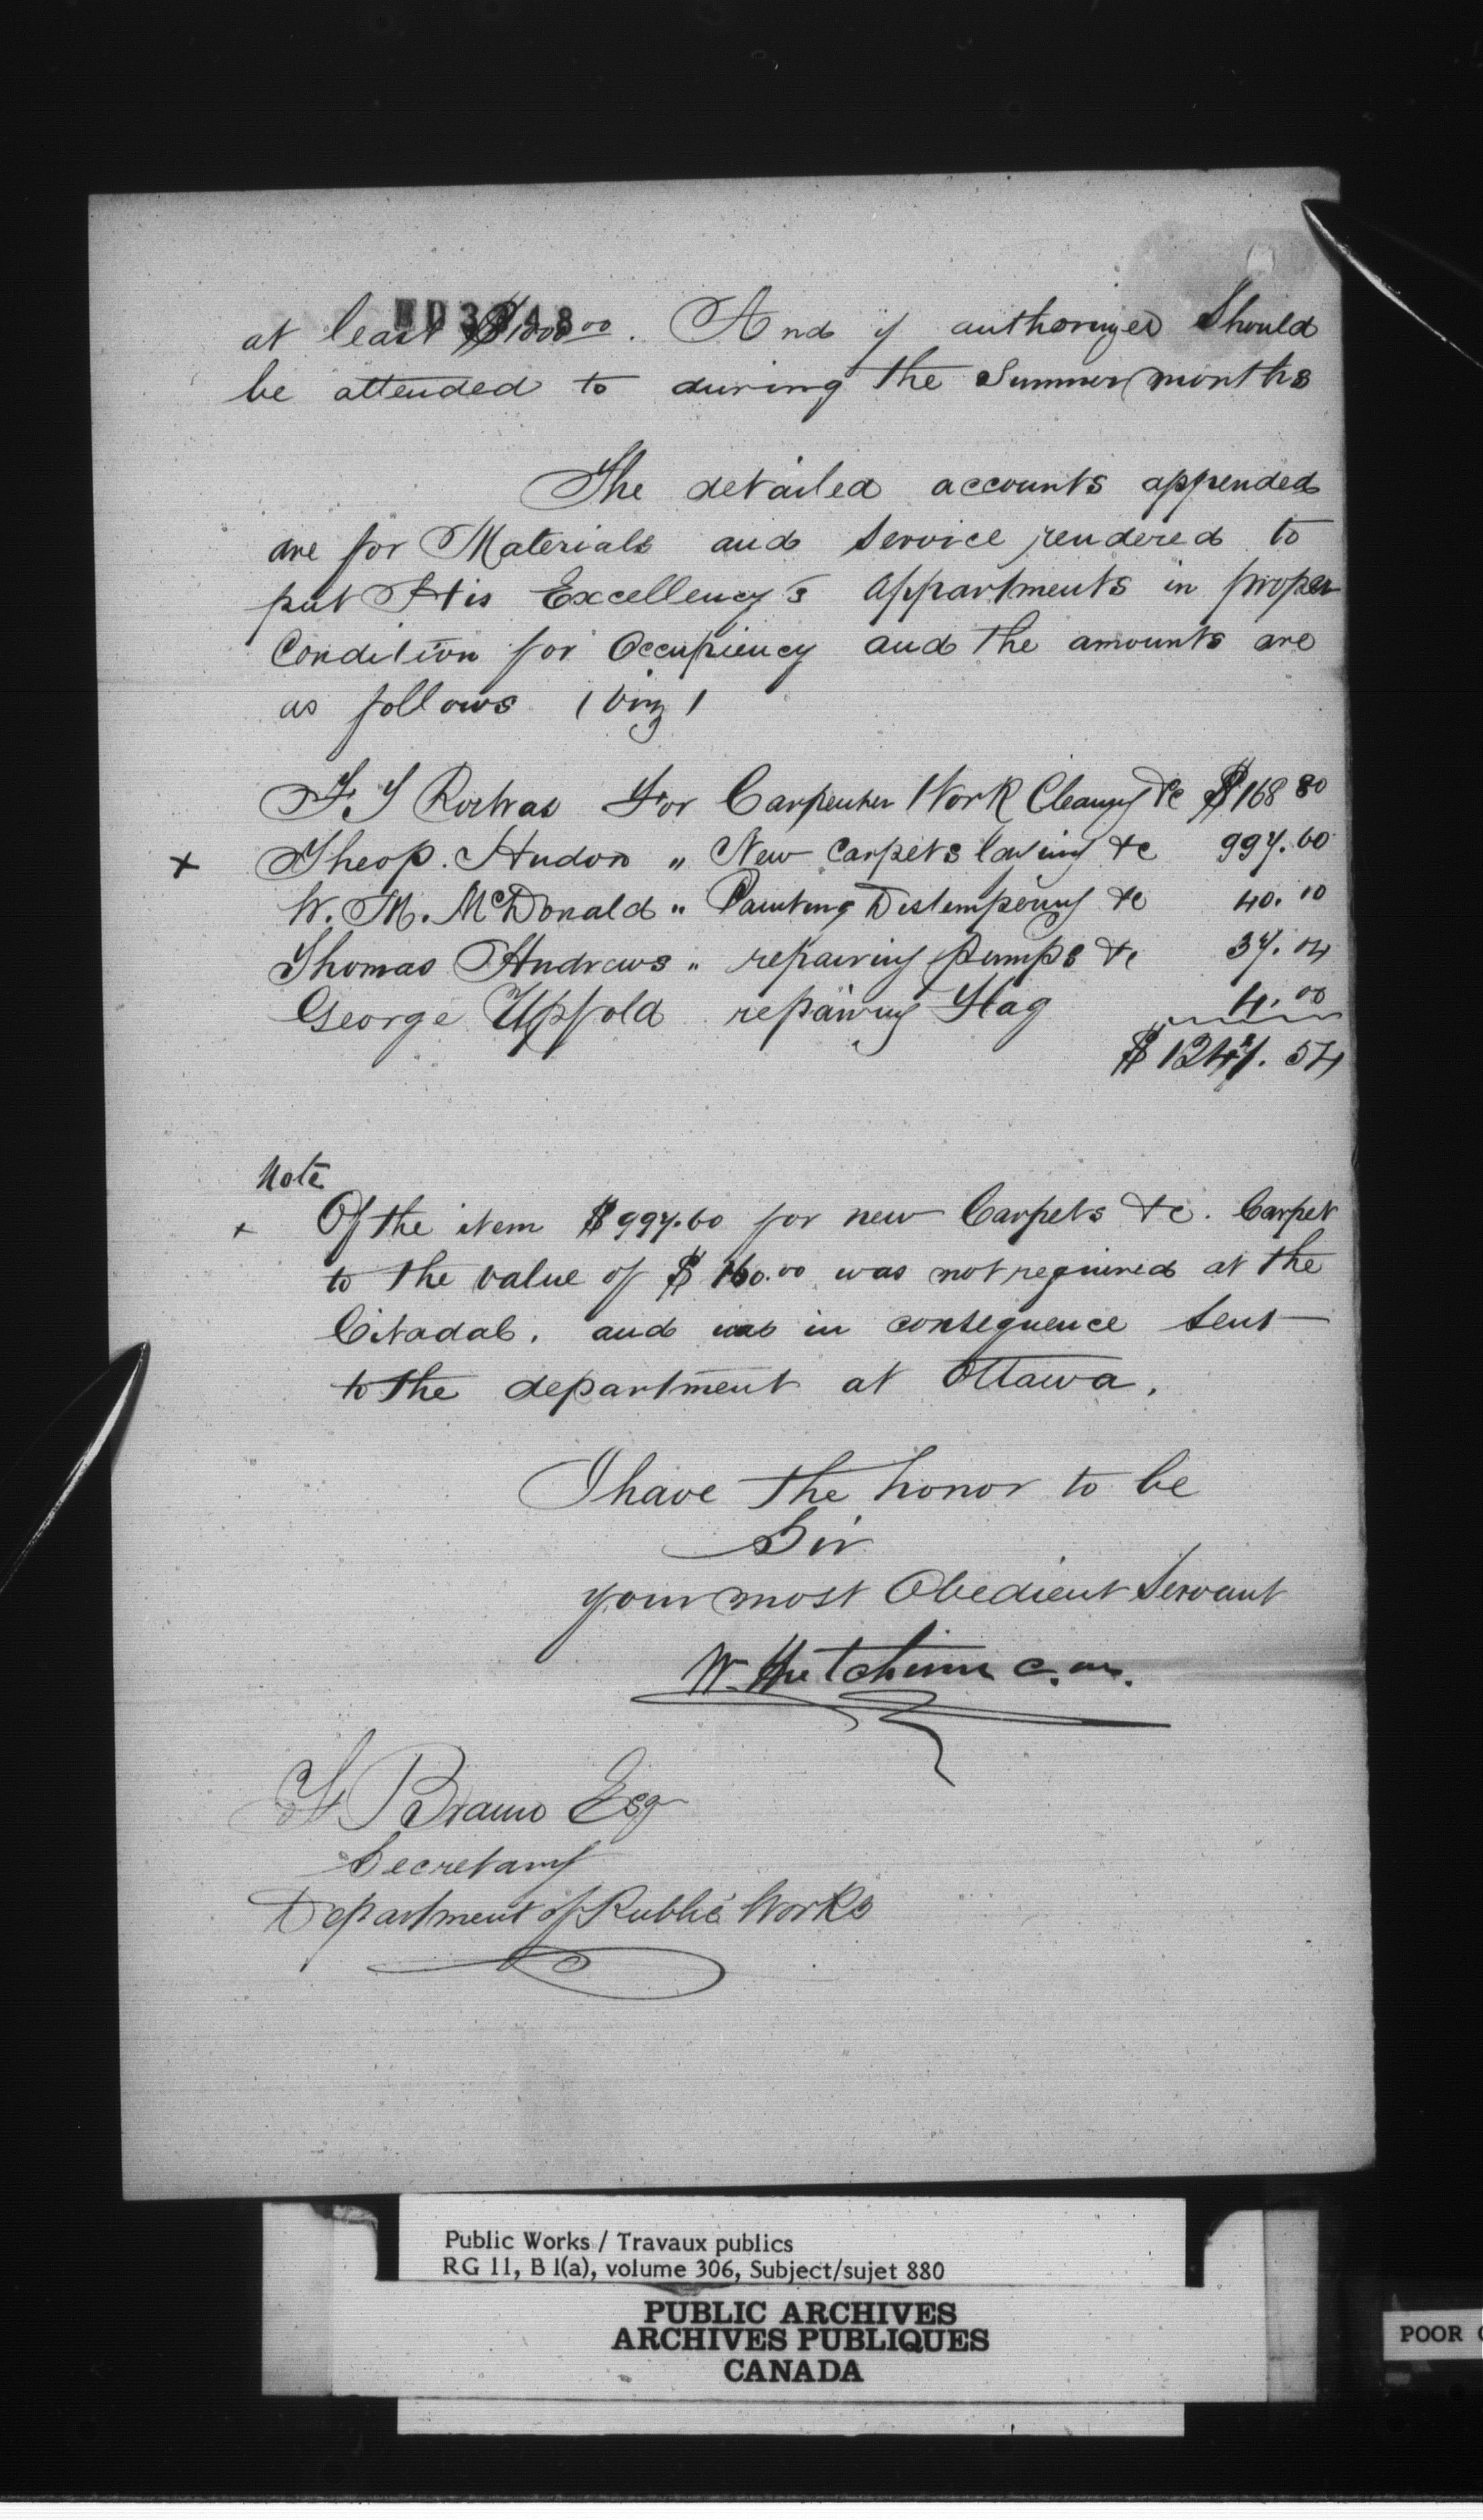 at least $1000.00. And if authorized Should
be attended to during the Summer months
The detailed accounts appended
are for Materials and Service rendered to
put His Excellency's appartments in proper
Condition for Occupiency and the amounts are
as follows (viz)
For Carpenter Work Cleaning &c $168 80
+ Theop. Hudon " New Carpets laying &c 997.60
W. M. McDonald " Painting Distempering &c 40.10
Thomas Andrews " repairing Pumps &c 37.04
George Uppold repairing Flag 4.00
$ 1247.54
Note
+ Of the item $997.60 for new Carpets &c. Carpet
to the value of $160.00 was not required at the
Citadal. and was in consequence Sent
to the department at Ottawa.
I have the honor to be
Sir
your most Obedient Servant
W. Hutchison
F Braun Esq
Secretary
Department of Public Works
Public Works / Travaux publics
RG 11, B 1(a), volume 306, Subject/sujet 880
PUBLIC ARCHIVES
ARCHIVES PUBLIQUES
CANADA
POOR